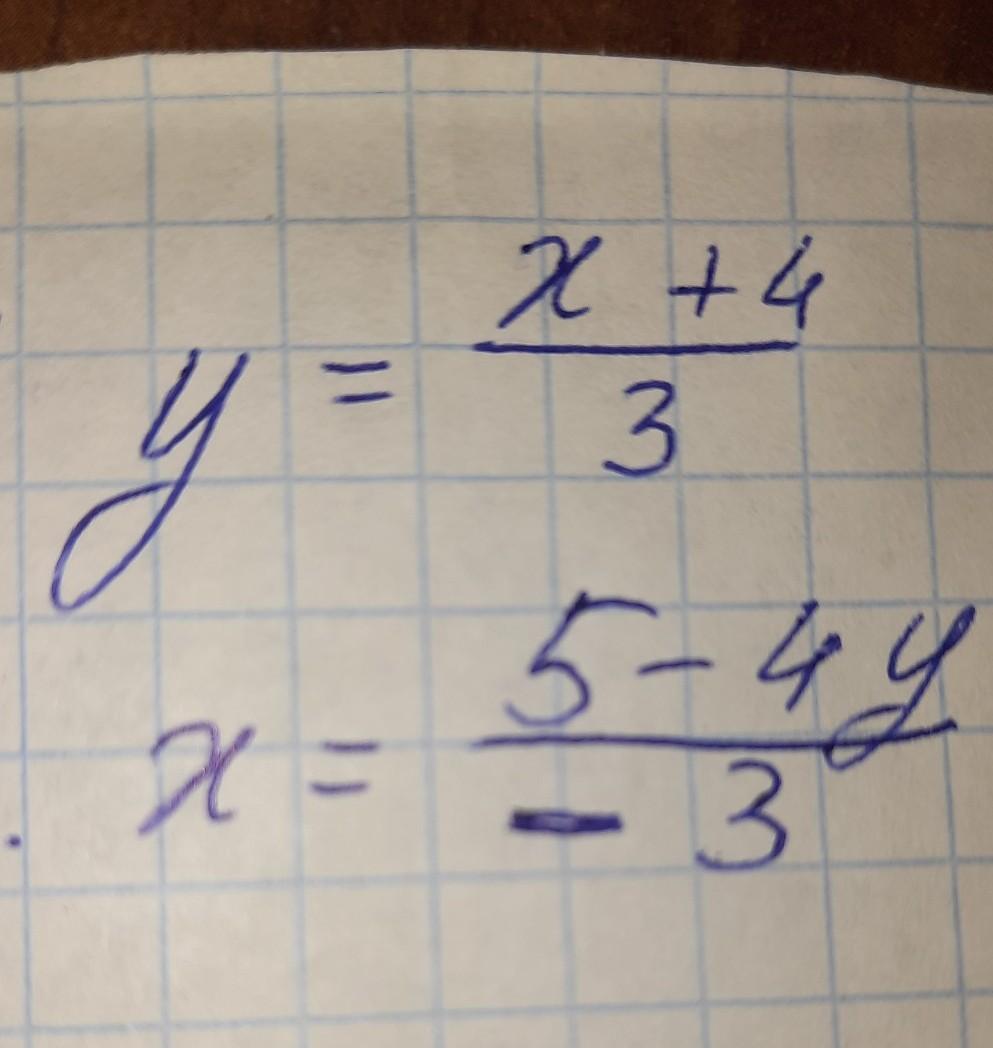 y = \frac{x + 4}{3}
x = \frac{5 - 4y}{- 3}